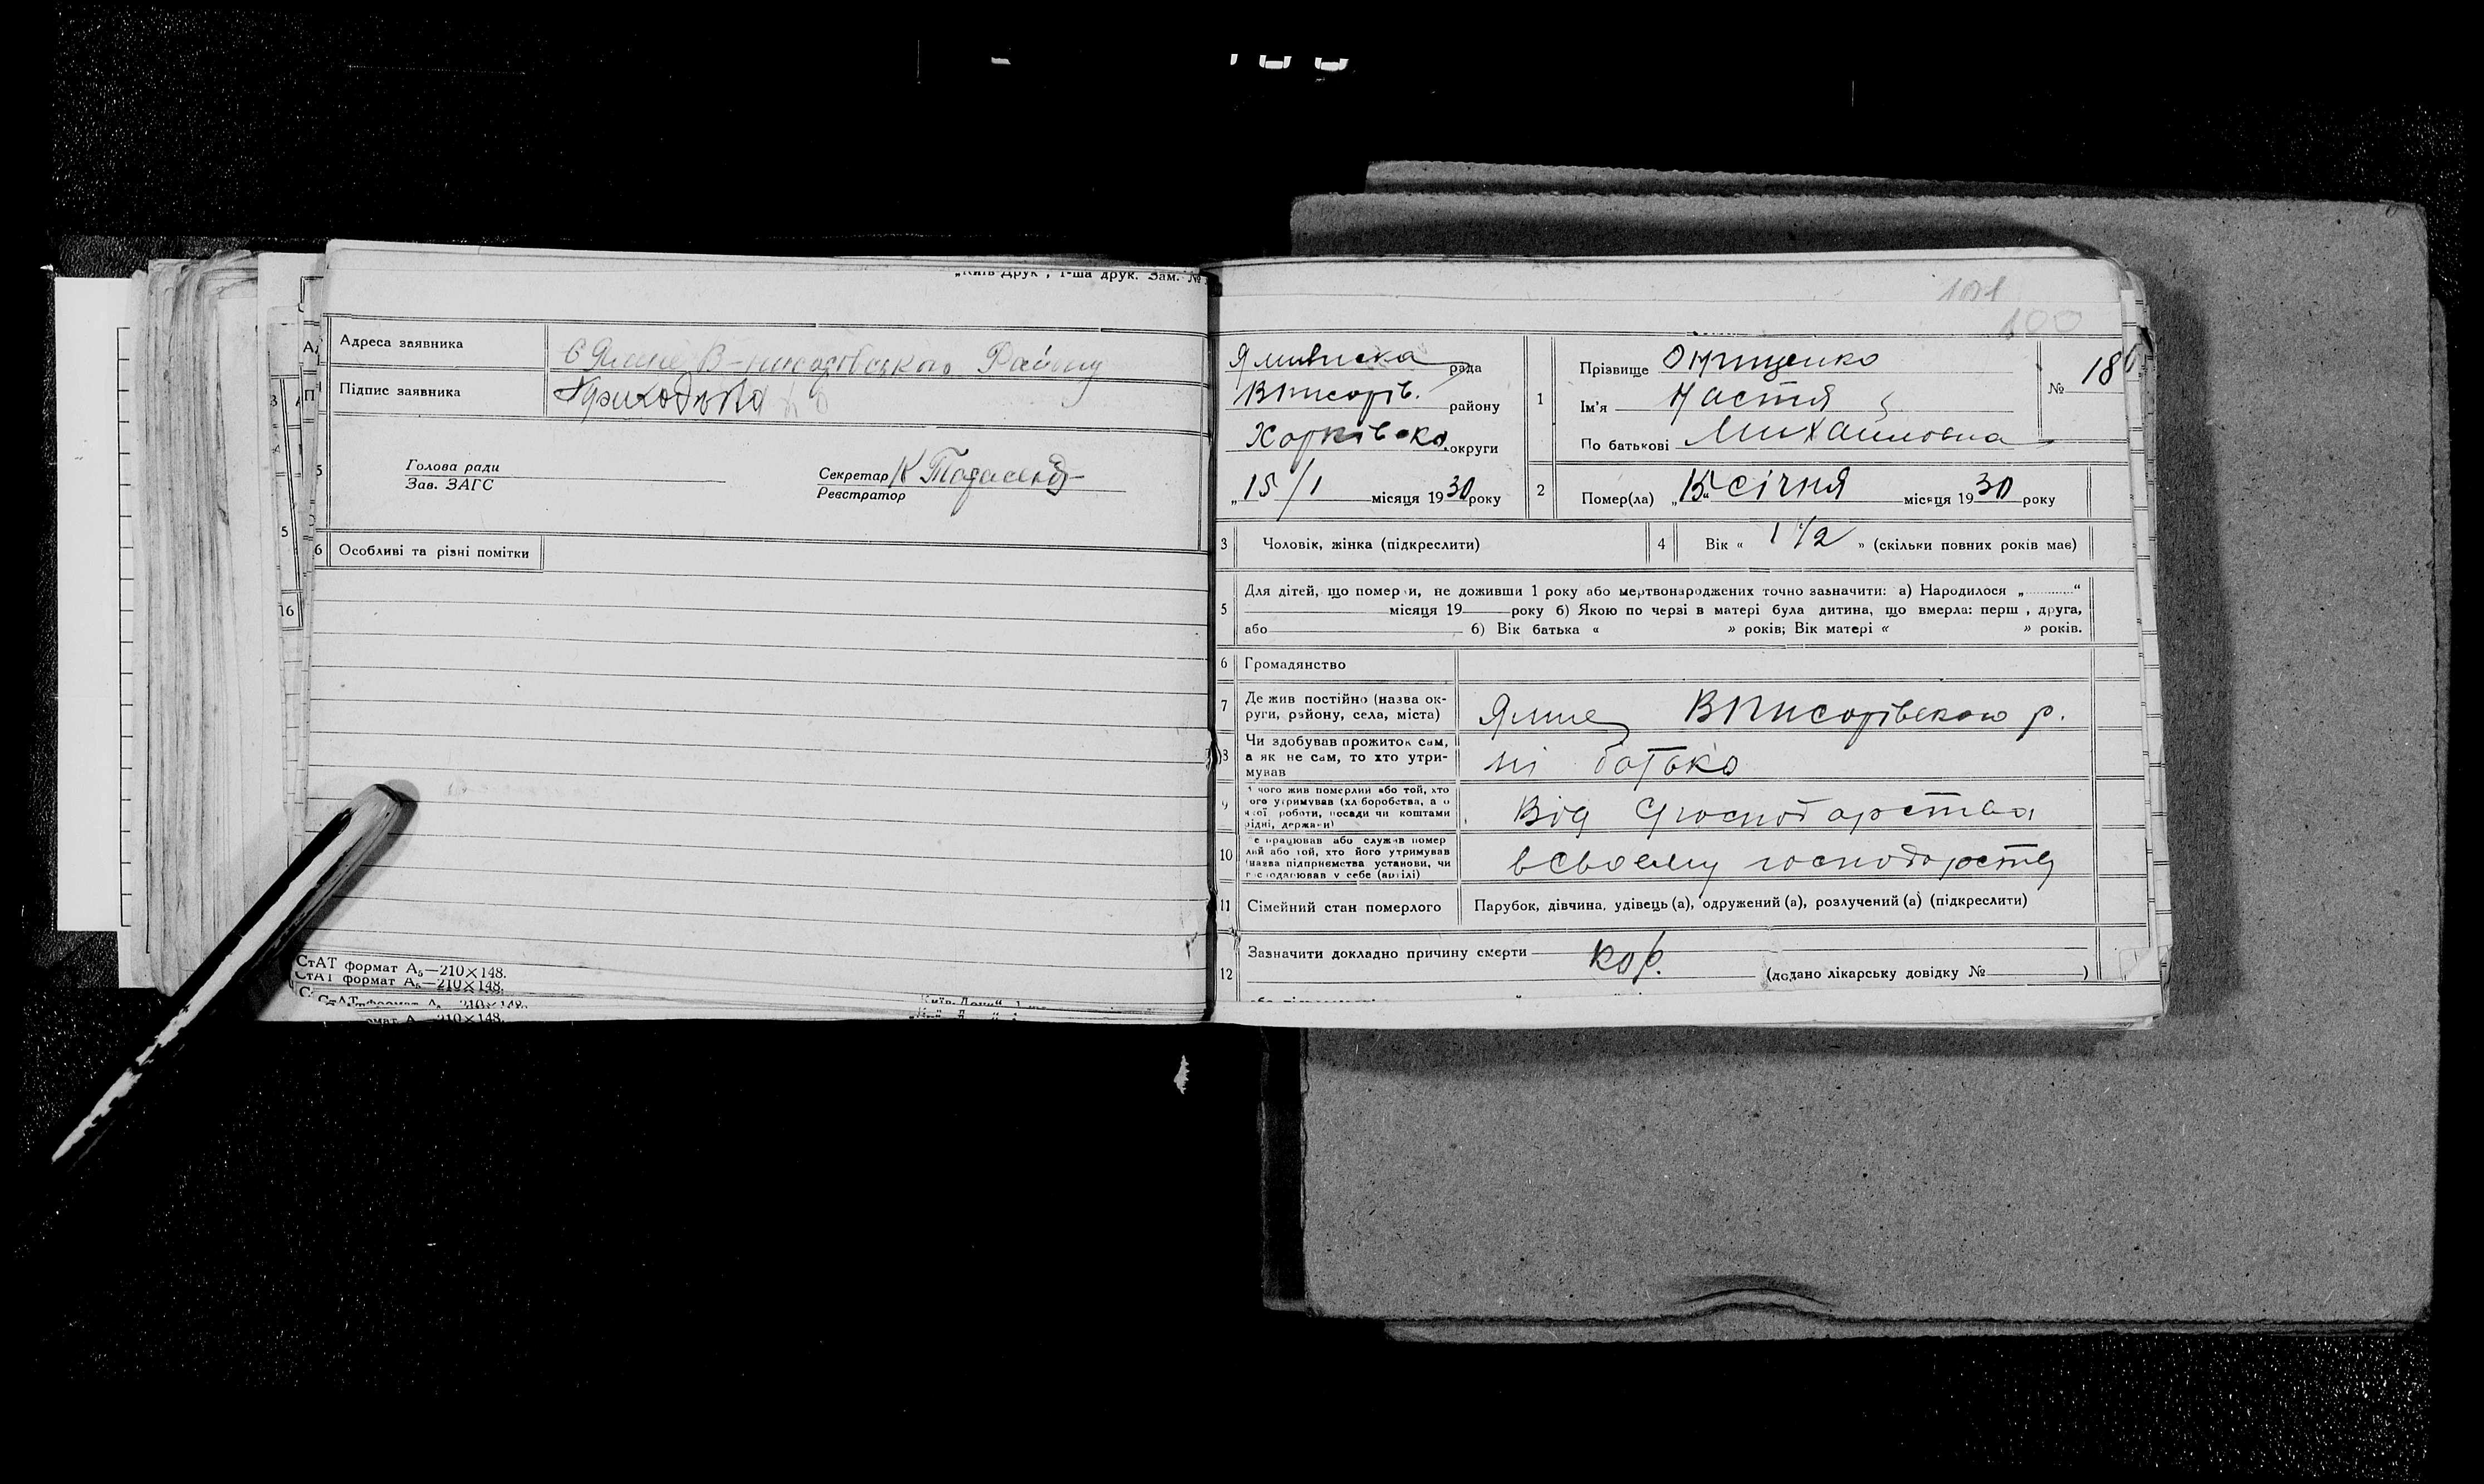 „Київ-Друк", 1-ша друк. Зам. №
Адреса заявника
Району
Підпис заявника Приходько
Голова ради
Зав. ЗАГС
Секретар
Реєстратор
6 Особливі та різні помітки
СтАТ формат А₅—210×148.
СтАТ формат А₅—210×148.
СтАТ формат А₅ —210×148.
формат А —210×148.
5
16
101
100
рада
Вписорів. району
Харківсько округи
„15/1 місяця 1930 року
1 Прізвище Онищенко
Ім'я Настя
По батькові Михайловна
№ 18
2 Помер(ла) „15" січня місяця 1930 року
3 Чоловік, жінка (підкреслити)
4 Вік « 1 1/2 » (скільки повних років має)
5 Для дітей, що помер и, не доживши 1 року або мертвонароджених точно зазначити: а) Народилося „ “
місяця 19 року б) Якою по черзі в матері була дитина, що вмерла: перш , друга,
або б) Вік батька « » років; Вік матері « » років.
6 Громадянство
7 Де жив постійно (назва ок-
руги, району, села, міста) Ямне Вписорівского р.
8 Чи здобував прожиток сам,
а як не сам, то хто утри-
мував ні батько
9 чого жив померлий або той, хто
ого утримував (хл боробства, а о
якої роботи, посади чи коштами
рідні, держави) Від Господарства
10 е працював або служив помер
лий або той, хто його утримував
(назва підприємства установи, чи
господарював у себе (артілі) в своему господарству
11 Сімейний стан померлого Парубок, дівчина, удівець (а), одружений (а), розлучений (а) (підкреслити)
12 Зазначити докладно причину смерти кор.
(додано лікарську довідку № )